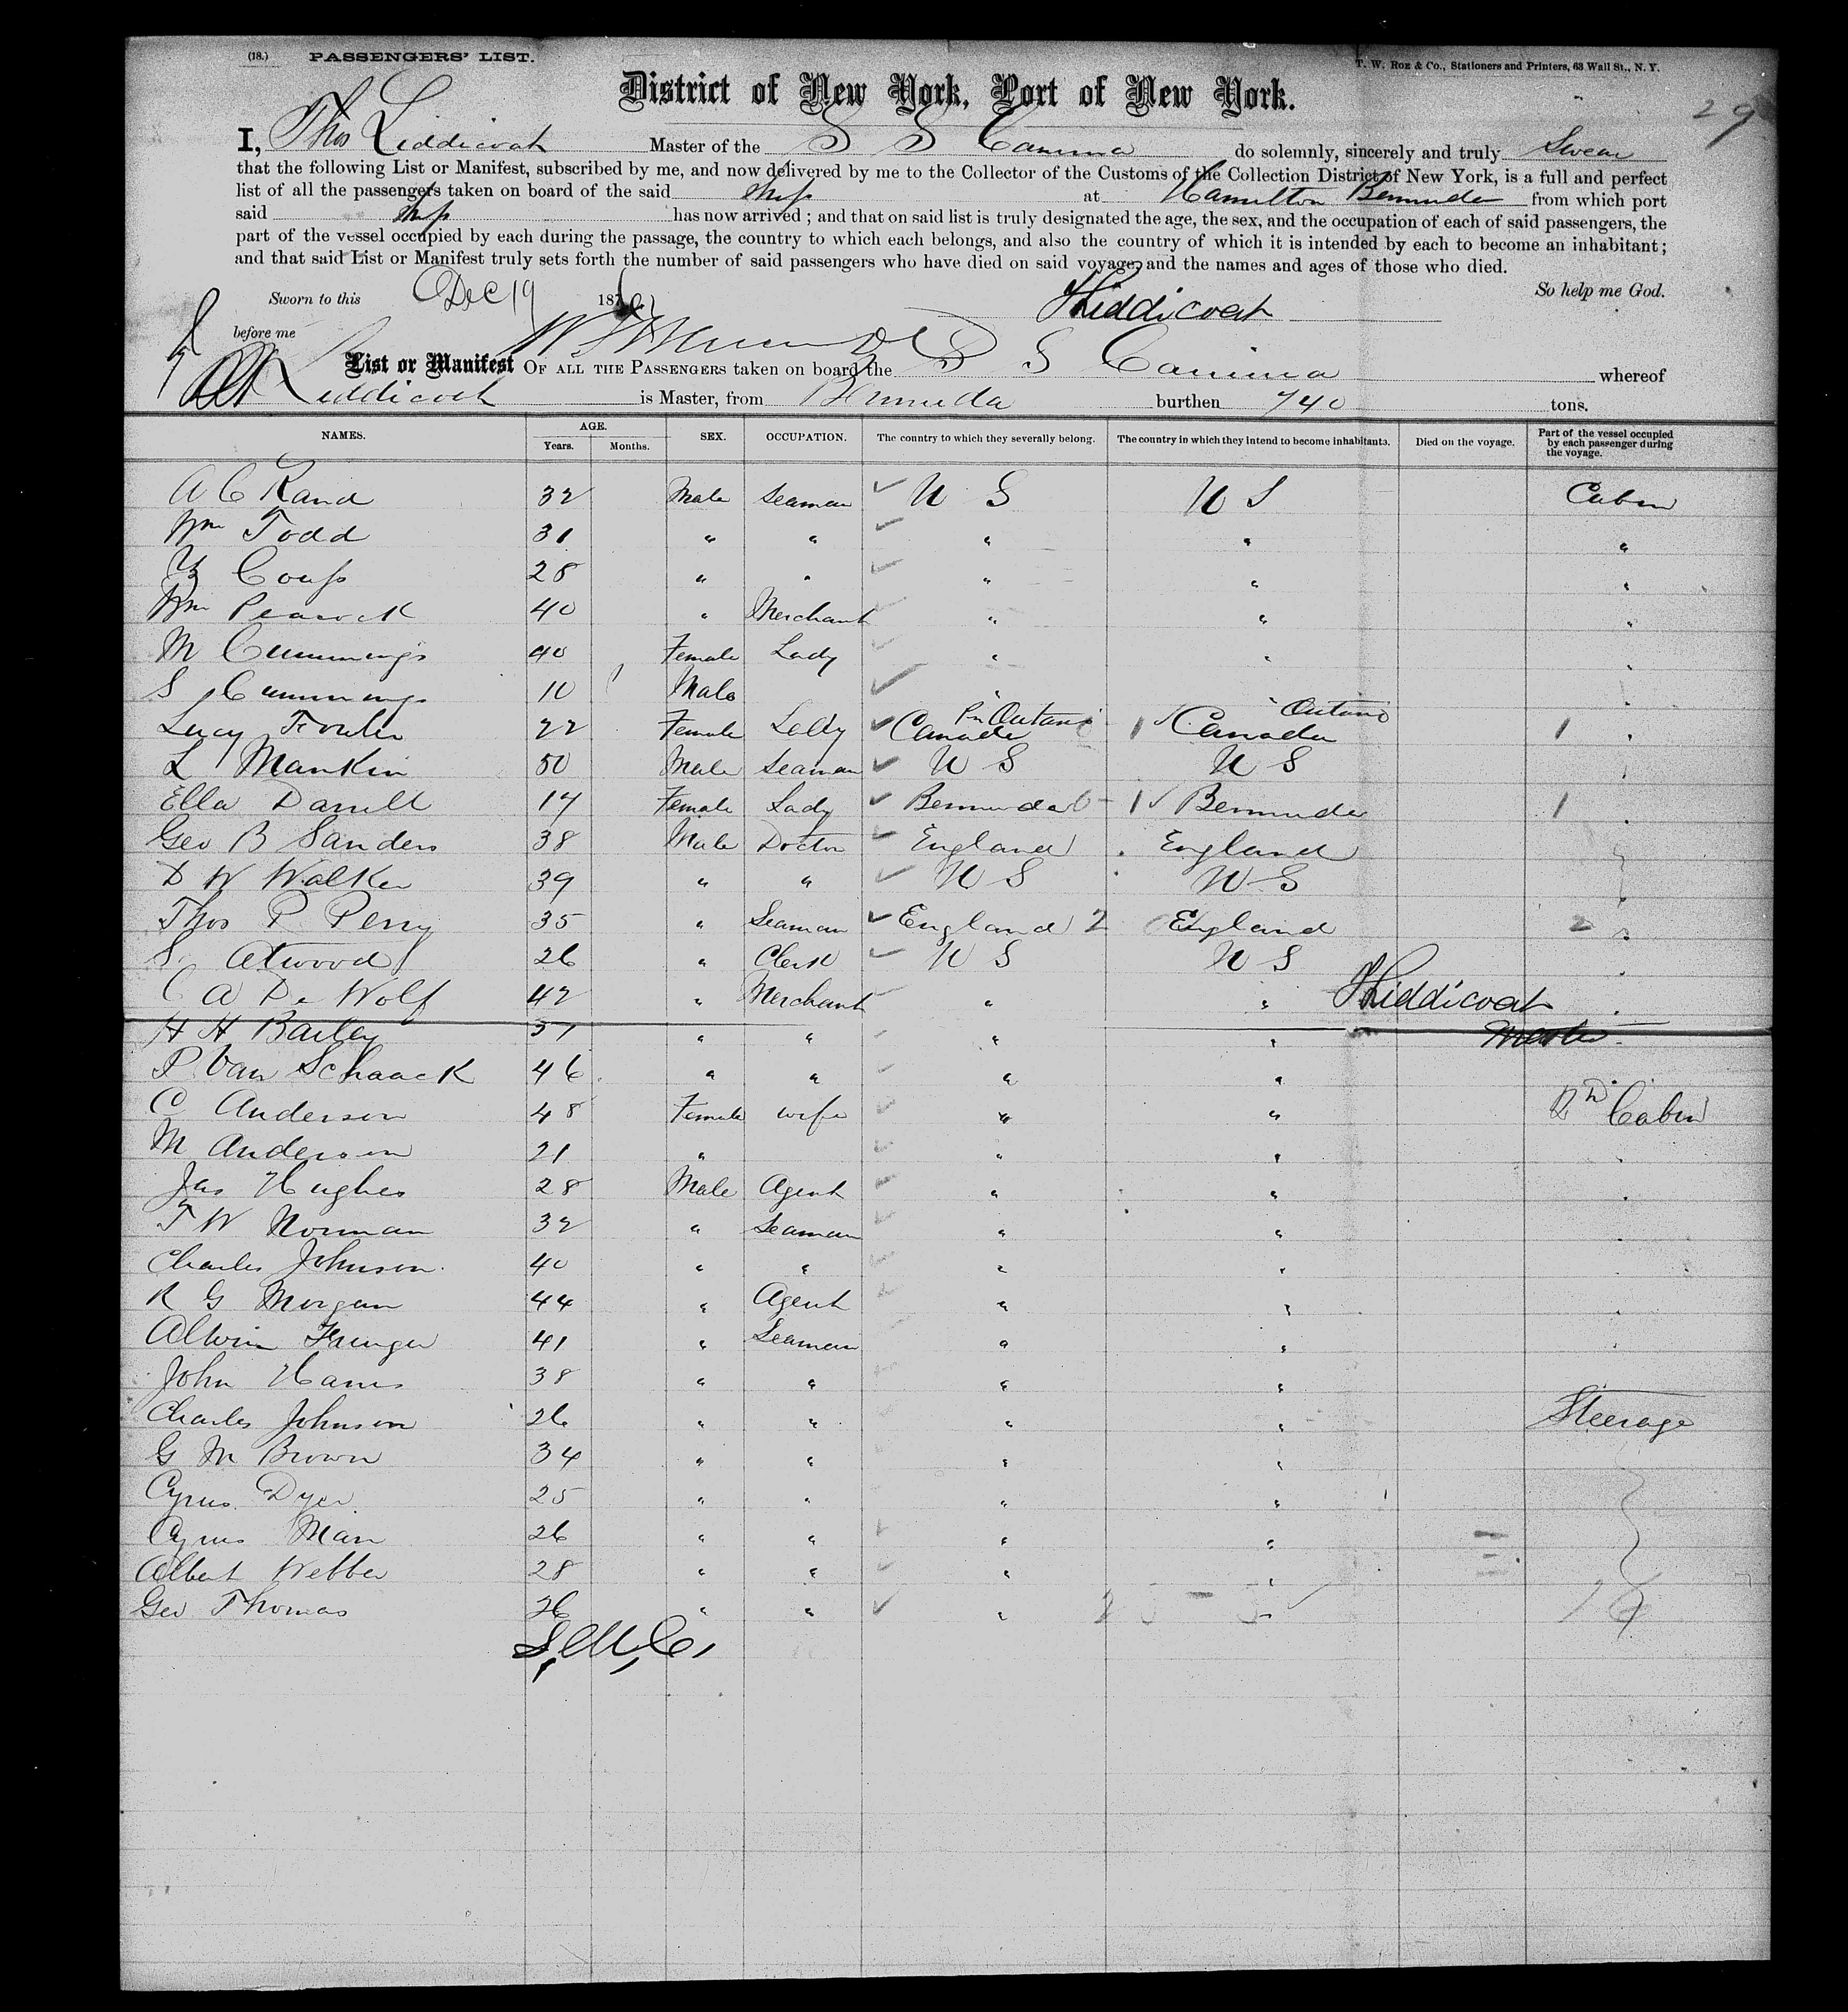 (18.) PASSENGERS' LIST.
T. W. Roz & Co., Stationers and Printers, 63 Wall St., N. Y.
29
District of New York, Port of New York.
I, Thos Liddicoat Master of the S S Canima do solemnly, sincerely and truly Swear
that the following List or Manifest, subscribed by me, and now delivered by me to the Collector of the Customs of the Collection District of New York, is a full and perfect
list of all the passengers taken on board of the said Ship at Hamilton Bermuda from which port
said Ship has now arrived ; and that on said list is truly designated the age, the sex, and the occupation of each of said passengers, the
part of the vessel occupied by each during the passage, the country to which each belongs, and also the country of which it is intended by each to become an inhabitant ;
and that said List or Manifest truly sets forth the number of said passengers who have died on said voyage, and the names and ages of those who died.
So help me God.
Sworn to this Dec 19 187
TLiddicoat
before me
List or Manifest OF ALL THE PASSENGERS taken on board the S S Canima whereof
Liddicoat is Master, from Bermuda burthen 740 tons.
NAMES. AGE. Years. Months. SEX. OCCUPATION. The country to which they severally belong. The country in which they intend to become inhabitants. Died on the voyage. Part of the vessel occupied by each passenger during the voyage.
A C Rand 32 Male Seaman U S U S Cabin
Wm Todd 31 " " " " "
Coufs 28 " " " " "
Wm Peacock 40 " Merchant " " "
M Cummings 40 Female Lady " " "
S Cummings 10 Male " "
Lucy Fowler 22 Female Lady Canada Ontario 1 Canada Ontario 1 "
L Mankin 50 Male Seaman U S U S "
Ella Darrell 17 Female Lady Bermuda 1 Bermuda 1 "
Geo B Sanders 38 Male Doctor England England
D W Walker 39 " " U S U S
Thos P Perry 35 " Seaman England 2 England 2 "
S. Atwood 26 " Clerk U S U S "
C A De Wolf 42 " Merchant " " TLiddicoat "
H H Bailey 37 " " " " Master "
P. Van Schaack 46 " " " " "
C Anderson 48 Female wife " " 2nd Cabin
M Anderson 21 " " " "
Jas Hughes 28 Male Agent " " "
T W Norman 32 " Seaman " " "
Charles Johnson 40 " " " " "
R G Morgan 44 " Agent " " "
Alwin 41 " Seaman " " "
John 38 " " " " "
Charles Johnson 26 " " " " Steerage
G M Brown 34 " " " "
Cyrus Dyer 25 " " " "
Cyrus Man 26 " " " "
Albert Webber 28 " " " "
Geo Thomas 26 " " " "